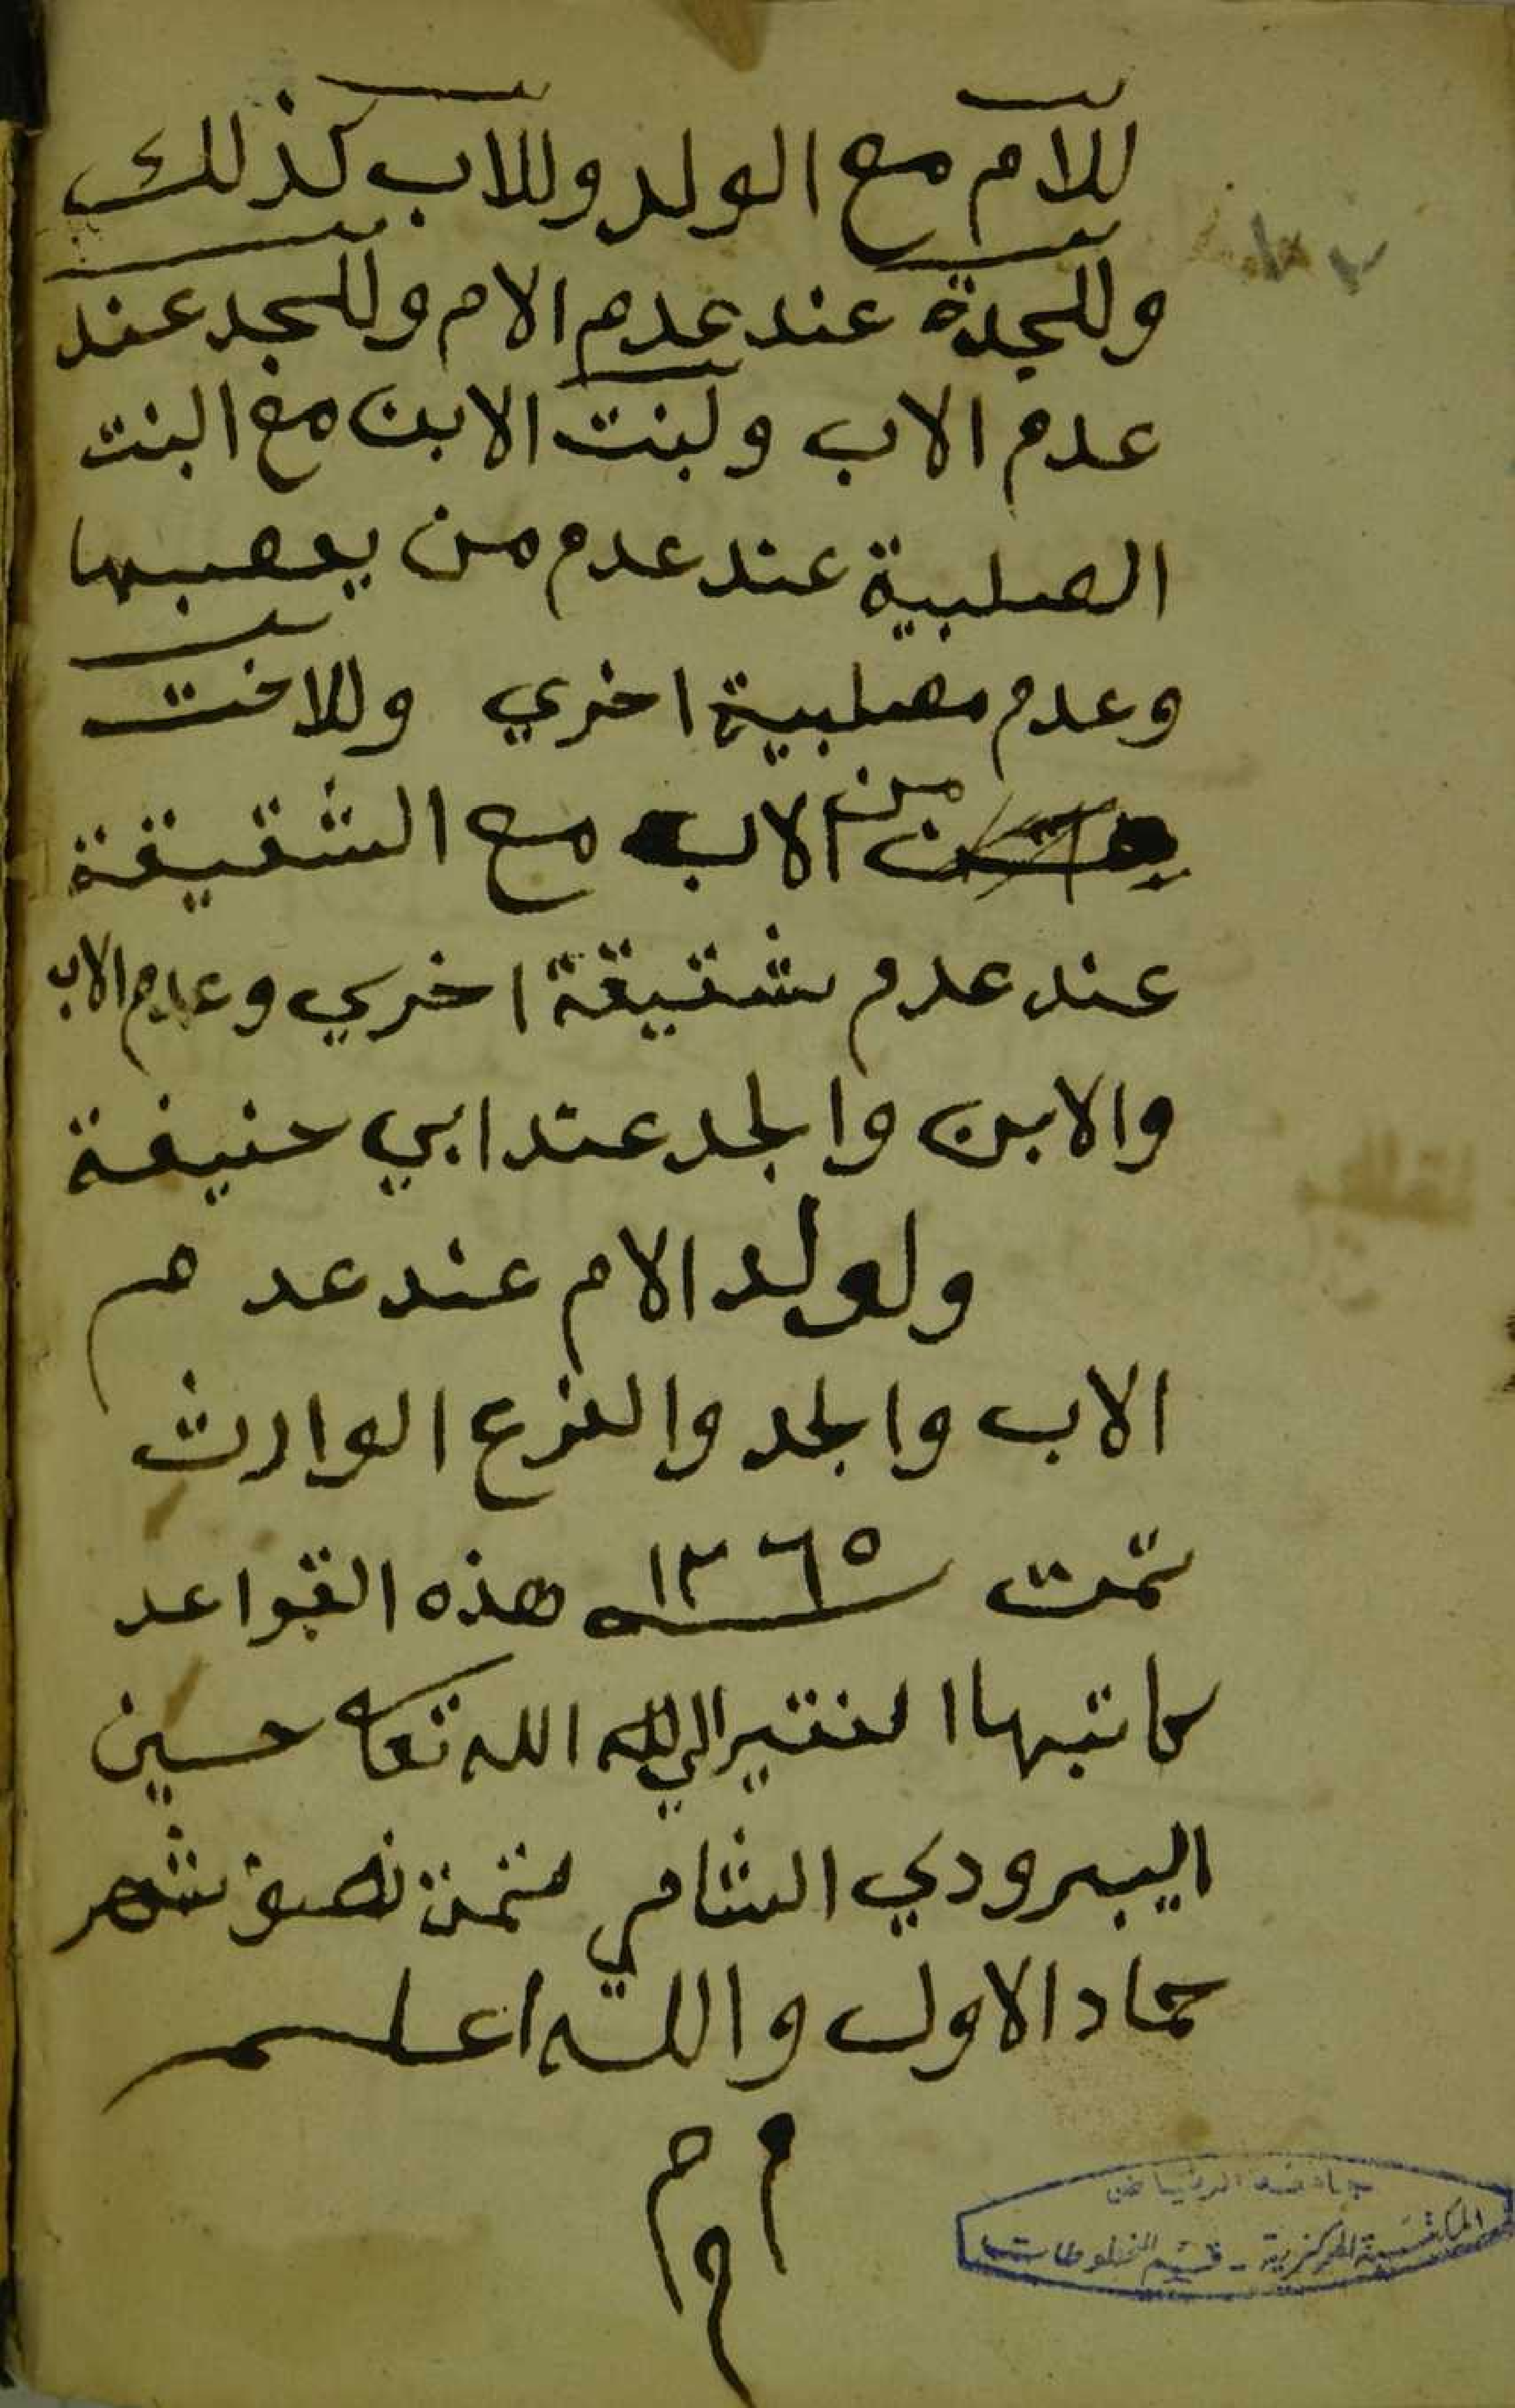 للام مع الولد وللاب كذلك
وللجدة عند عدم الام وللجد عند
عدم الاب ولبنت الابن مع البنت
الصلبية عند عدم من يعصبها
وعدم صلبية اخري وللاخت
من الاب مع الشقيقة
عند عدم شقيقة اخري وعدم الاب
والابن والجد عند ابي حنيفة
ولولد الام عند عدم
الاب والجد والفرع الوارث
تمت ١٣٦٥ هذه القواعد
كاتبها الفقير الي الله تعا حسين
اليبرودي الشامي نصف شهر
جماد الاول والله اعلم
م م م
جامعة الرياض
المكتبة المركزية - قسم المخطوطات